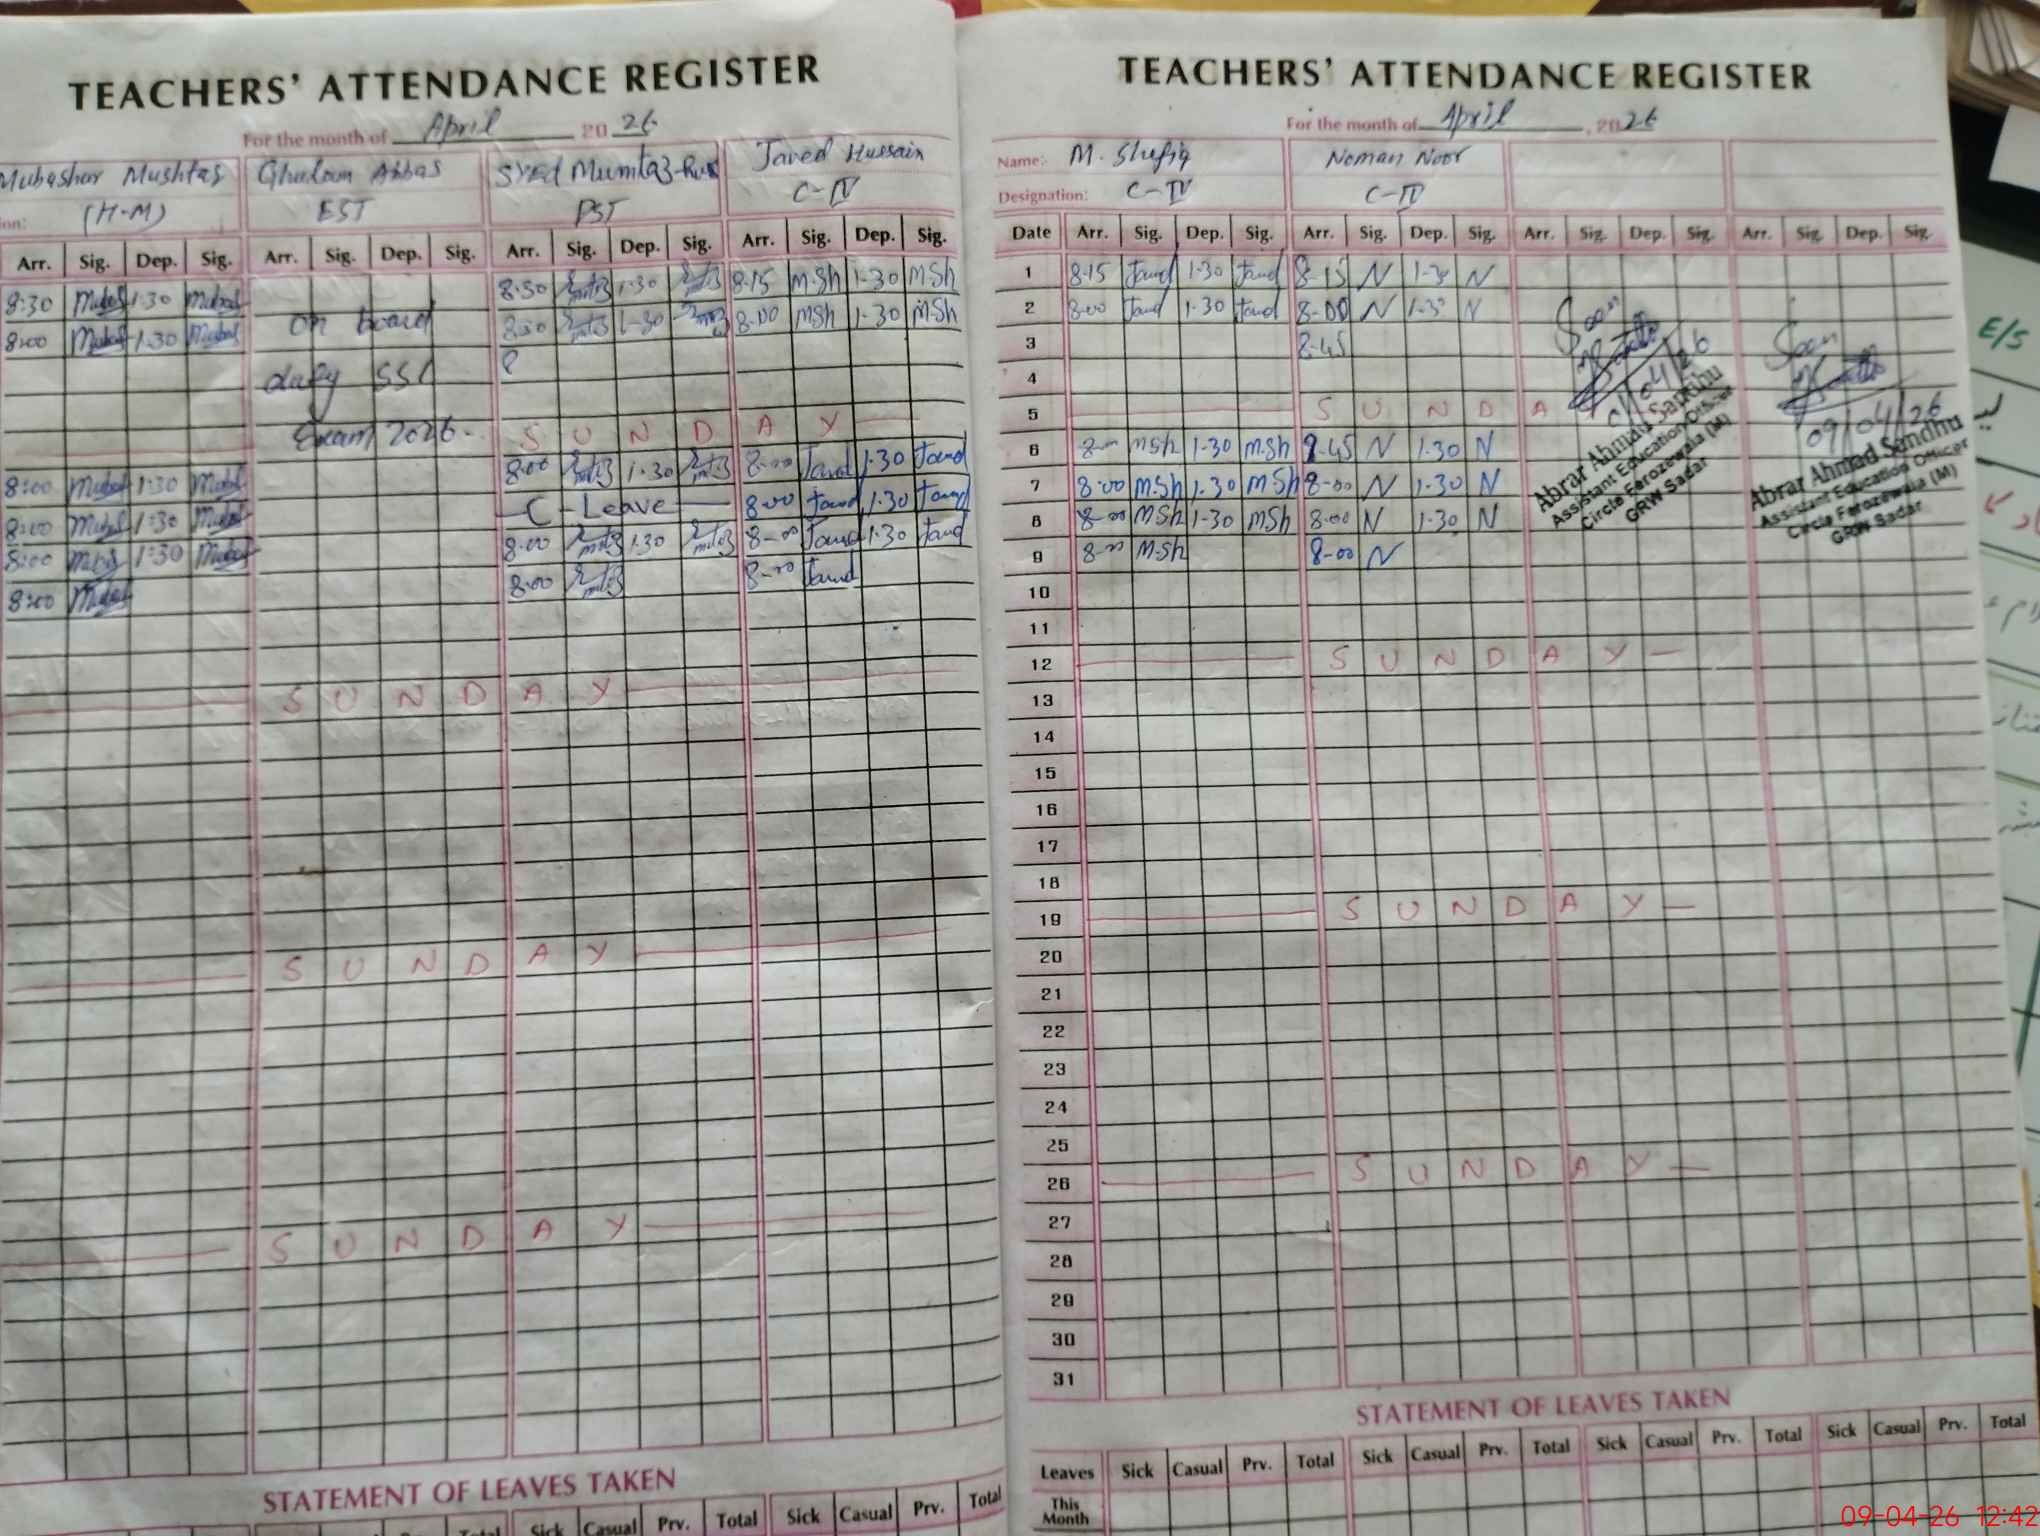 TEACHERS' ATTENDANCE REGISTER
For the month of April 2026
Mubashar Mushtaq Ghulam Abbas Syed Mumtaz Javed Hussain
(H-M) EST PST C-IV
Arr. Sig. Dep. Sig. Arr. Sig. Dep. Sig. Arr. Sig. Dep. Sig. Arr. Sig. Dep. Sig.
8:30 1:30 8:30 1-30 8-15 M.Sh 1-30 MSh
8:00 1:30 on board 1-30 8-00 MSh 1-30 MSh
duty SSC 8
Exam 2026 - S U N D A Y
8:00 1:30 8:00 1-30 8-00 Javd 1-30 Javd
8:00 1:30 C-Leave 8-00 Javd 1-30 Javd
8:00 1:30 8:00 1:30 8-00 Javd 1-30 Javd
8:00 8:00 8-00 Javd
S U N D A Y
S U N D A Y
S U N D A Y
STATEMENT OF LEAVES TAKEN
Sick Casual Prv. Total Sick Casual Prv. Total
TEACHERS' ATTENDANCE REGISTER
For the month of April, 2026
Name: M. Shafiq Noman Noor
Designation: C-IV C-IV
Date Arr. Sig. Dep. Sig. Arr. Sig. Dep. Sig. Arr. Sig. Dep. Sig. Arr. Sig. Dep. Sig.
1 8-15 Javd 1-30 Javd 8-15 N 1-30 N
2 8-00 Javd 1-30 Javd 8-00 N 1-30 N
3 8-45
4
5 S U N D A
6 8-00 MSh 1-30 MSh 8-45 N 1-30 N
7 8-00 M.Sh 1-30 MSh 8-00 N 1-30 N
8 8-00 MSh 1-30 MSh 8-00 N 1-30 N
9 8-00 M.Sh 8-00 N
10
11
12 S U N D A Y
13
14
15
16
17
18
19 S U N D A Y
20
21
22
23
24
25
26 S U N D A Y
27
28
29
30
31
Seen
Abrar Ahmad Sandhu
Assistant Education Officer
Circle Ferozewala (M)
GRW Sadar
Seen
09/04/26
Abrar Ahmad Sandhu
Assistant Education Officer
Circle Ferozewala (M)
GRW Sadar
STATEMENT OF LEAVES TAKEN
Leaves Sick Casual Prv. Total Sick Casual Prv. Total Sick Casual Prv. Total Sick Casual Prv. Total
This Month
E/S
09-04-26 12:42